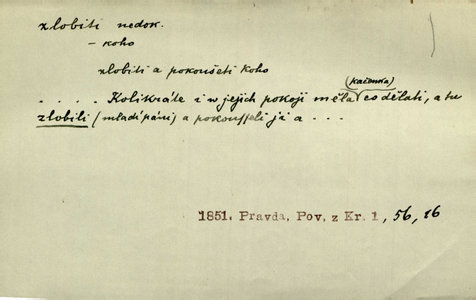 zlobiti nedok.
- koho
zlobiti a pokoušeti koho
(kačenka)
. . . . Kolikráte i w jejich pokoji měla co dělati, a tu
zlobili (mladí páni) a pokoušseli ja a . . .
1851. Pravda, Pov. z Kr. 1, 56, 26